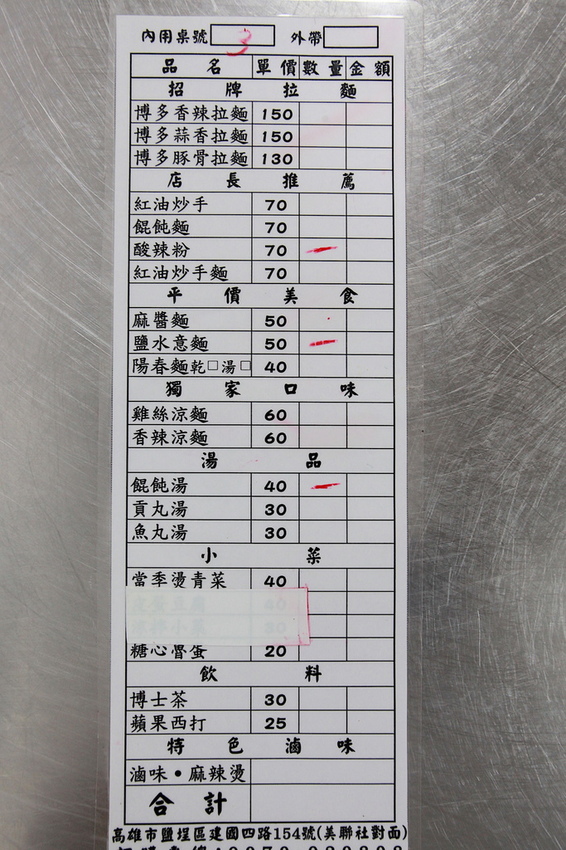 內用桌號 3 外帶
品名 單價 數量 金額
招牌拉麵
博多香辣拉麵 150
博多蒜香拉麵 150
博多豚骨拉麵 130
店長推薦
紅油炒手 70
餛飩麵 70
酸辣粉 70 一
紅油炒手麵 70
平價美食
麻醬麵 50
鹽水意麵 50 一
陽春麵乾□湯□ 40
獨家口味
雞絲涼麵 60
香辣涼麵 60
湯品
餛飩湯 40 一
貢丸湯 30
魚丸湯 30
小菜
當季燙青菜 40
糖心滷蛋 20
飲料
博士茶 30
蘋果西打 25
特色滷味
滷味•麻辣燙
合計
高雄市鹽埕區建國四路154號(美聯社對面)